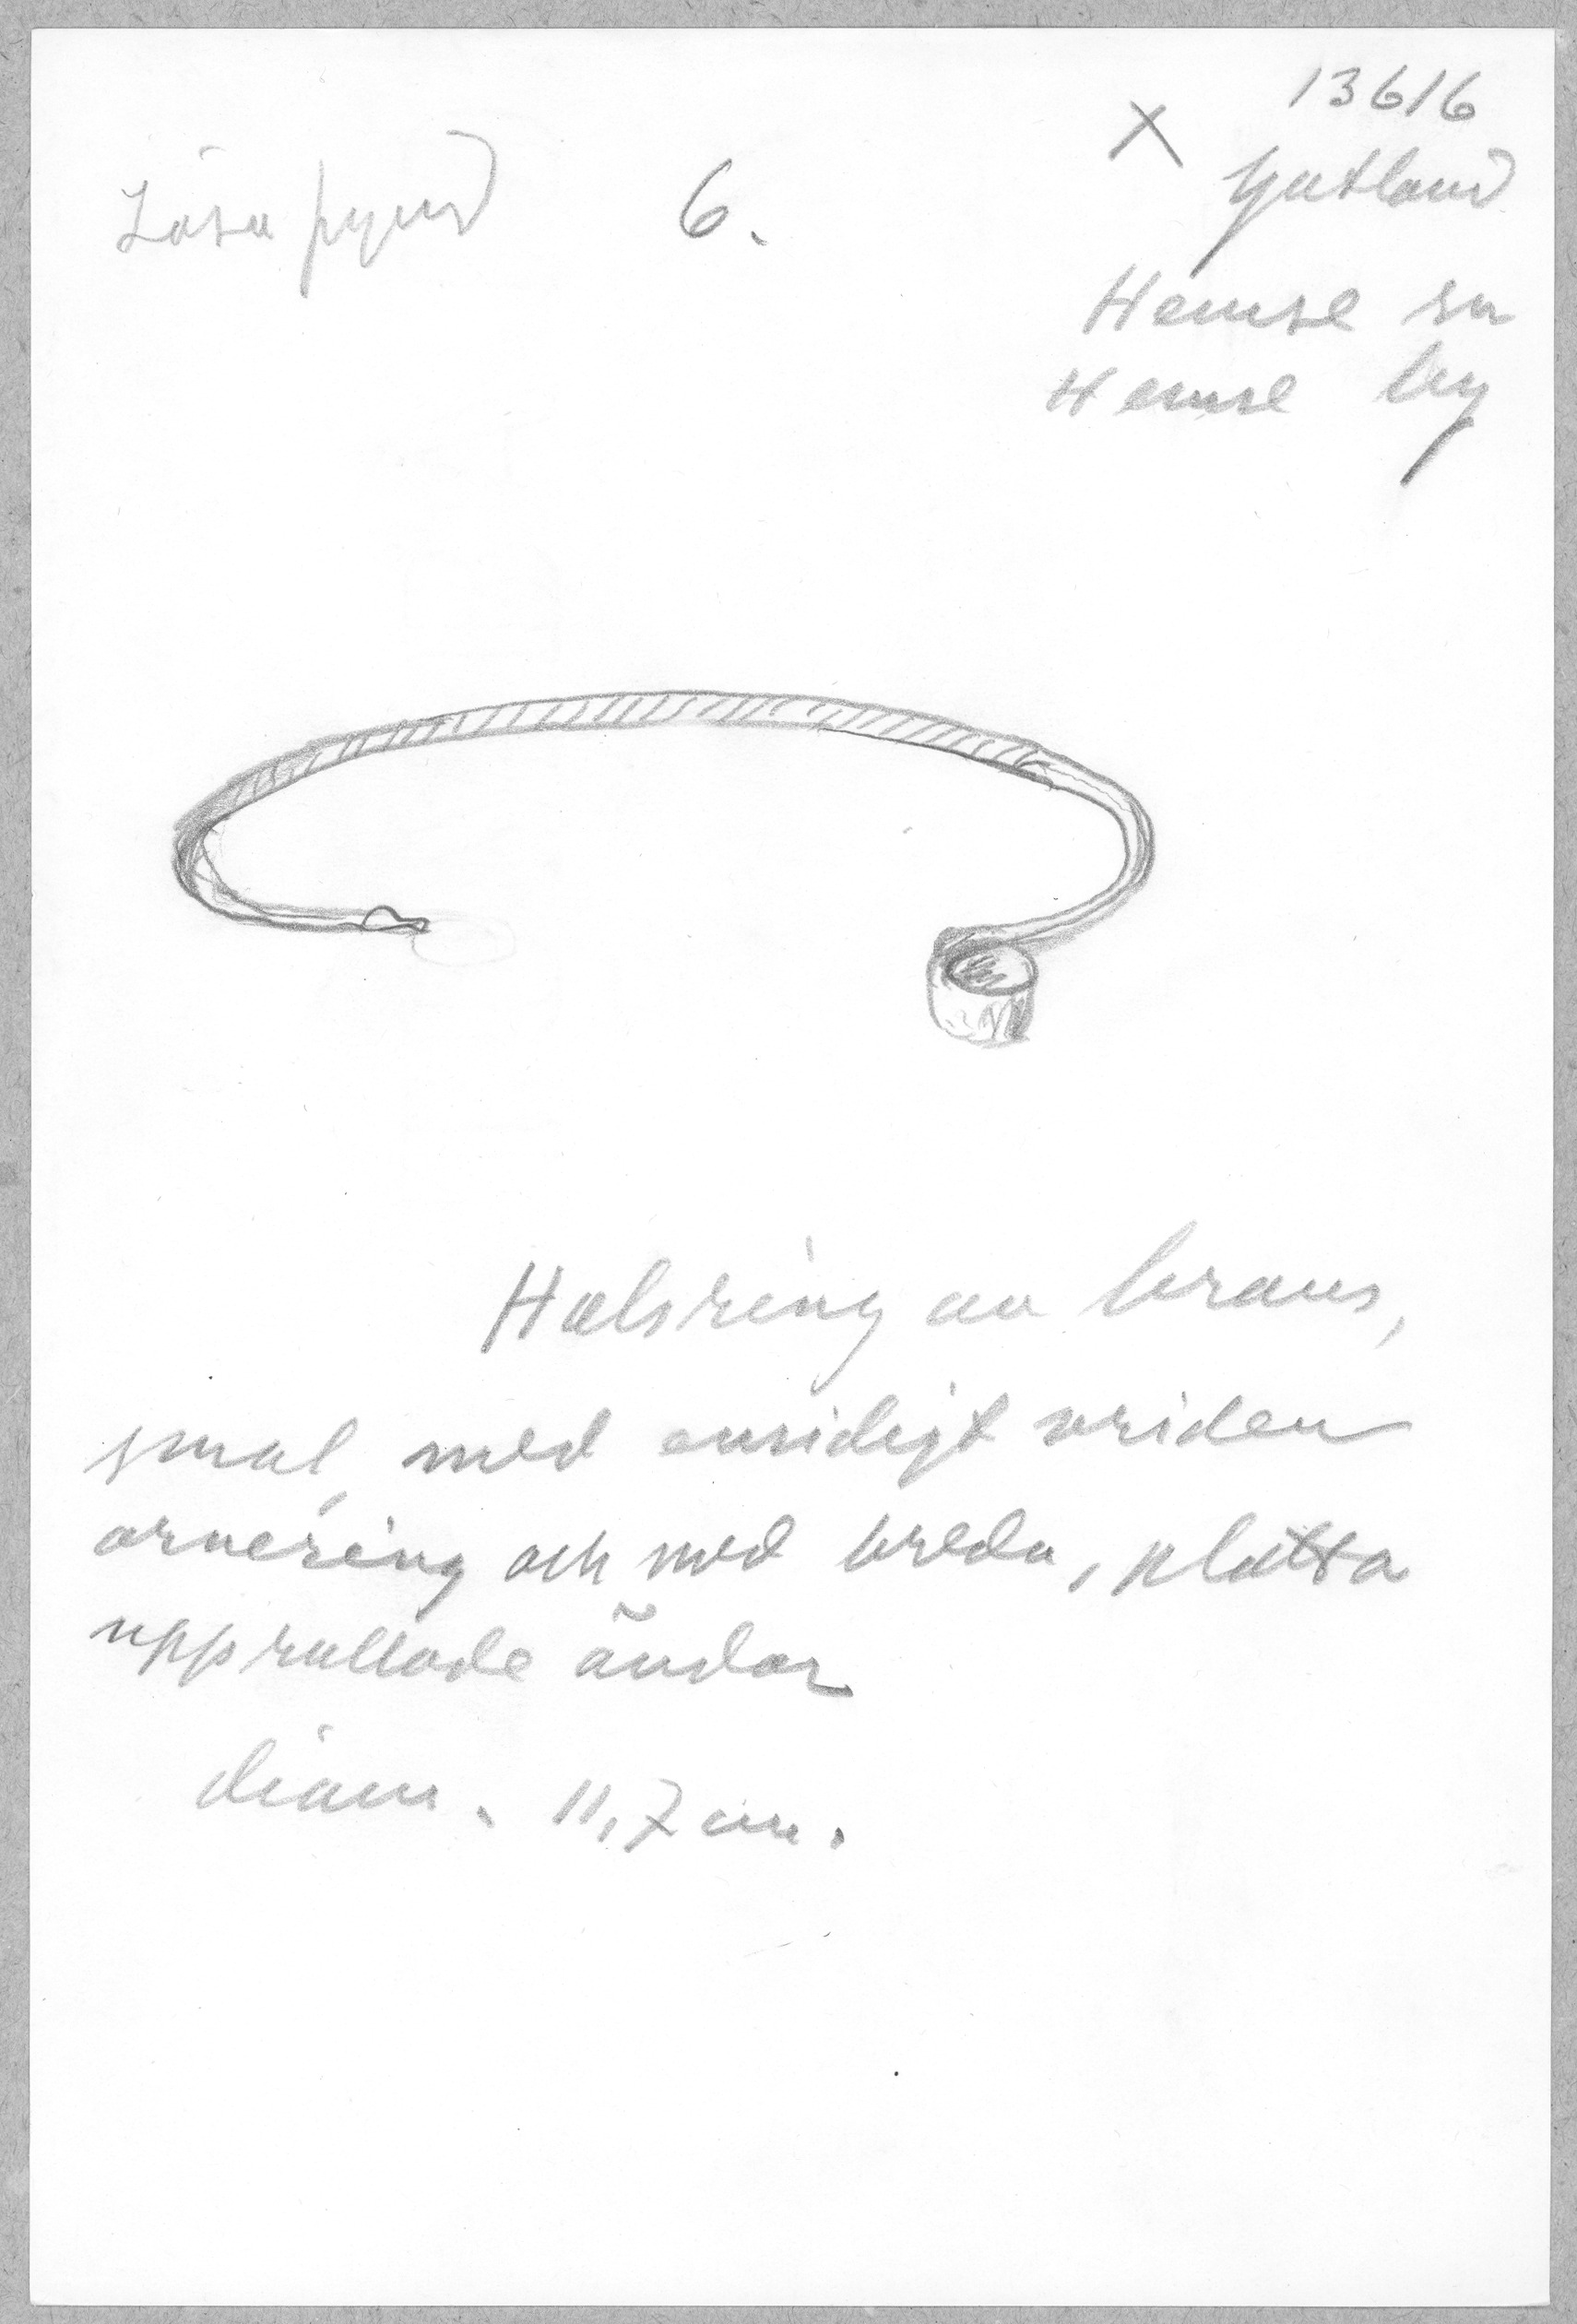 13616
Lösa fynd 6. X Gotland
Hemse sn
Hemse by
Halsring av brons,
smal, med ensidigt vriden
ornering och med breda, platta
upprullade ändar
diam. 11,7 cm.